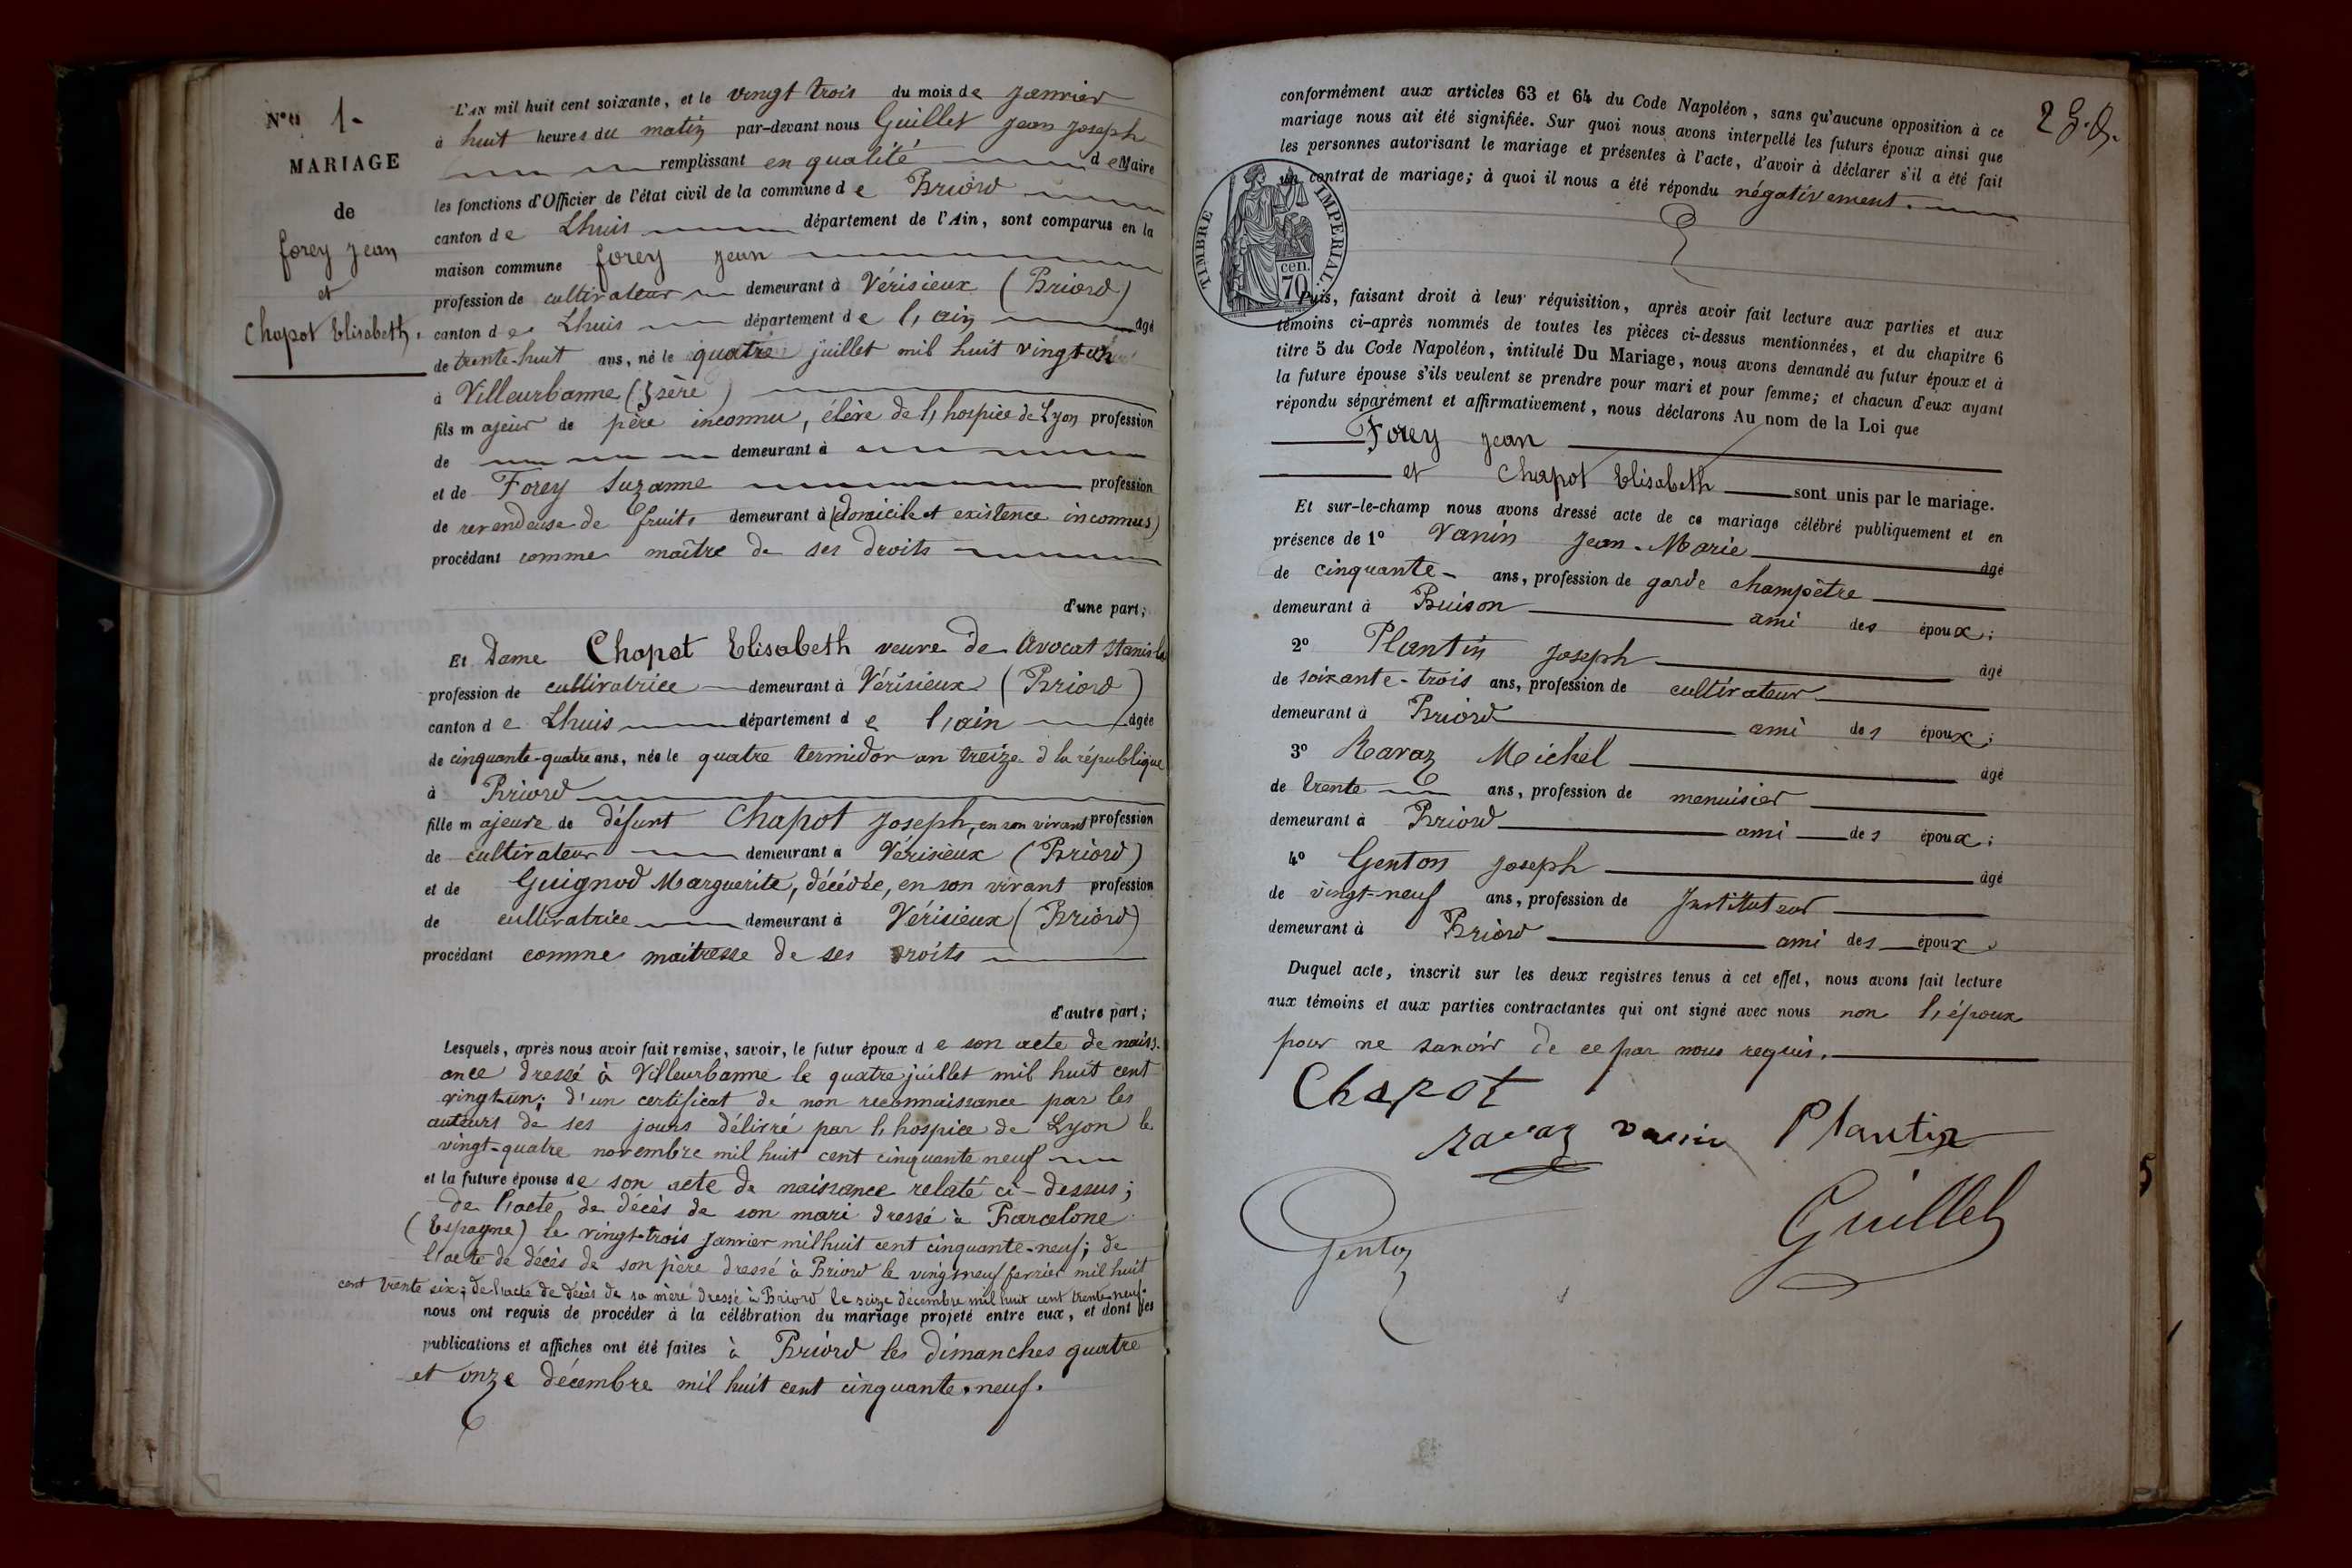 N° 1-
MARIAGE
de
forey jean
et
Chapot Elisabeth.
L'AN mil huit cent soixante, et le vingt trois du mois de janvier
à huit heures du matin par-devant nous Guillet jean joseph
remplissant en qualité de Maire
les fonctions d'Officier de l'état civil de la commune de Briord
canton de Lhuis département de l'Ain, sont comparus en la
maison commune forey jean
profession de cultivateur demeurant à Vérisieux (Briord)
canton de Lhuis département de l'ain âgé
de trente-huit ans, né le quatre juillet mil huit vingt-un
à Villeurbanne (Isère)
fils majeur de père inconnu, élève de l'hospice de Lyon profession
de demeurant à
et de Forey Suzanne profession
de revendeuse de fruits demeurant à (domicile et existence inconnus)
procédant comme maître de ses droits
d'une part;
Et Dame Chapot Elisabeth veuve de Avocat Stanislas
profession de cultivatrice demeurant à Vérisieux (Briord)
canton de Lhuis département de l'ain âgée
de cinquante-quatre ans, née le quatre termidor an treize d la république
à Briord
fille majeure de défunt Chapot joseph, en son vivant profession
de cultivateur demeurant à Vérisieux (Briord)
et de Guignod Marguerite, décédée, en son vivant profession
de cultivatrice demeurant à Vérisieux (Briord)
procédant comme maitresse de ses droits
d'autre part;
Lesquels, après nous avoir fait remise, savoir, le futur époux de son acte de naiss-
ance dressé à Villeurbanne le quatre juillet mil huit cent
vingt-un; d'un certificat de non reconnaissance par les
auteurs de ses jours délivré par l'hospice de Lyon le
vingt-quatre novembre mil huit cent cinquante neuf
et la future épouse de son acte de naissance relaté ci-dessus;
de l'acte de décès de son mari dressé à Barcelone
(Espagne) le vingt-trois janvier mil huit cent cinquante-neuf; de
l'acte de décès de son père dressé à Briord le vingt neuf fevrier mil huit
cent trente six; de l'acte de décès de sa mère dressé à Briord le seize décembre mil huit cent trente-neuf.
nous ont requis de procéder à la célébration du mariage projeté entre eux, et dont les
publications et affiches ont été faites à Briord les dimanches quatre
et onze décembre mil huit cent cinquante-neuf.
conformément aux articles 63 et 64 du Code Napoléon, sans qu'aucune opposition à ce
mariage nous ait été signifiée. Sur quoi nous avons interpellé les futurs époux ainsi que
les personnes autorisant le mariage et présentes à l'acte, d'avoir à déclarer s'il a été fait
un contrat de mariage; à quoi il nous a été répondu négativement.
TIMBRE IMPÉRIAL.
cen.
70
Puis, faisant droit à leur réquisition, après avoir fait lecture aux parties et aux
témoins ci-après nommés de toutes les pièces ci-dessus mentionnées, et du chapitre 6
titre 5 du Code Napoléon, intitulé Du Mariage, nous avons demandé au futur époux et à
la future épouse s'ils veulent se prendre pour mari et pour femme; et chacun d'eux ayant
répondu séparément et affirmativement, nous déclarons Au nom de la Loi que
Forey jean
et Chapot Elisabeth sont unis par le mariage.
Et sur-le-champ nous avons dressé acte de ce mariage célébré publiquement et en
présence de 1° Vanin Jean-Marie âgé
de cinquante- ans, profession de garde champêtre
demeurant à Buison ami des époux;
2° Plantin joseph âgé
de soixante-trois ans, profession de cultivateur
demeurant à Briord ami des époux;
3° Ravaz Michel âgé
de trente ans, profession de menuisier
demeurant à Briord ami des époux;
4° Genton joseph âgé
de vingt-neuf ans, profession de Instituteur
demeurant à Briord ami des époux.
Duquel acte, inscrit sur les deux registres tenus à cet effet, nous avons fait lecture
aux témoins et aux parties contractantes qui ont signé avec nous non l'époux
pour ne savoir de ce par nous requis.
Chapot
Ravaz Vanin Plantin
Genton
Guillet
5